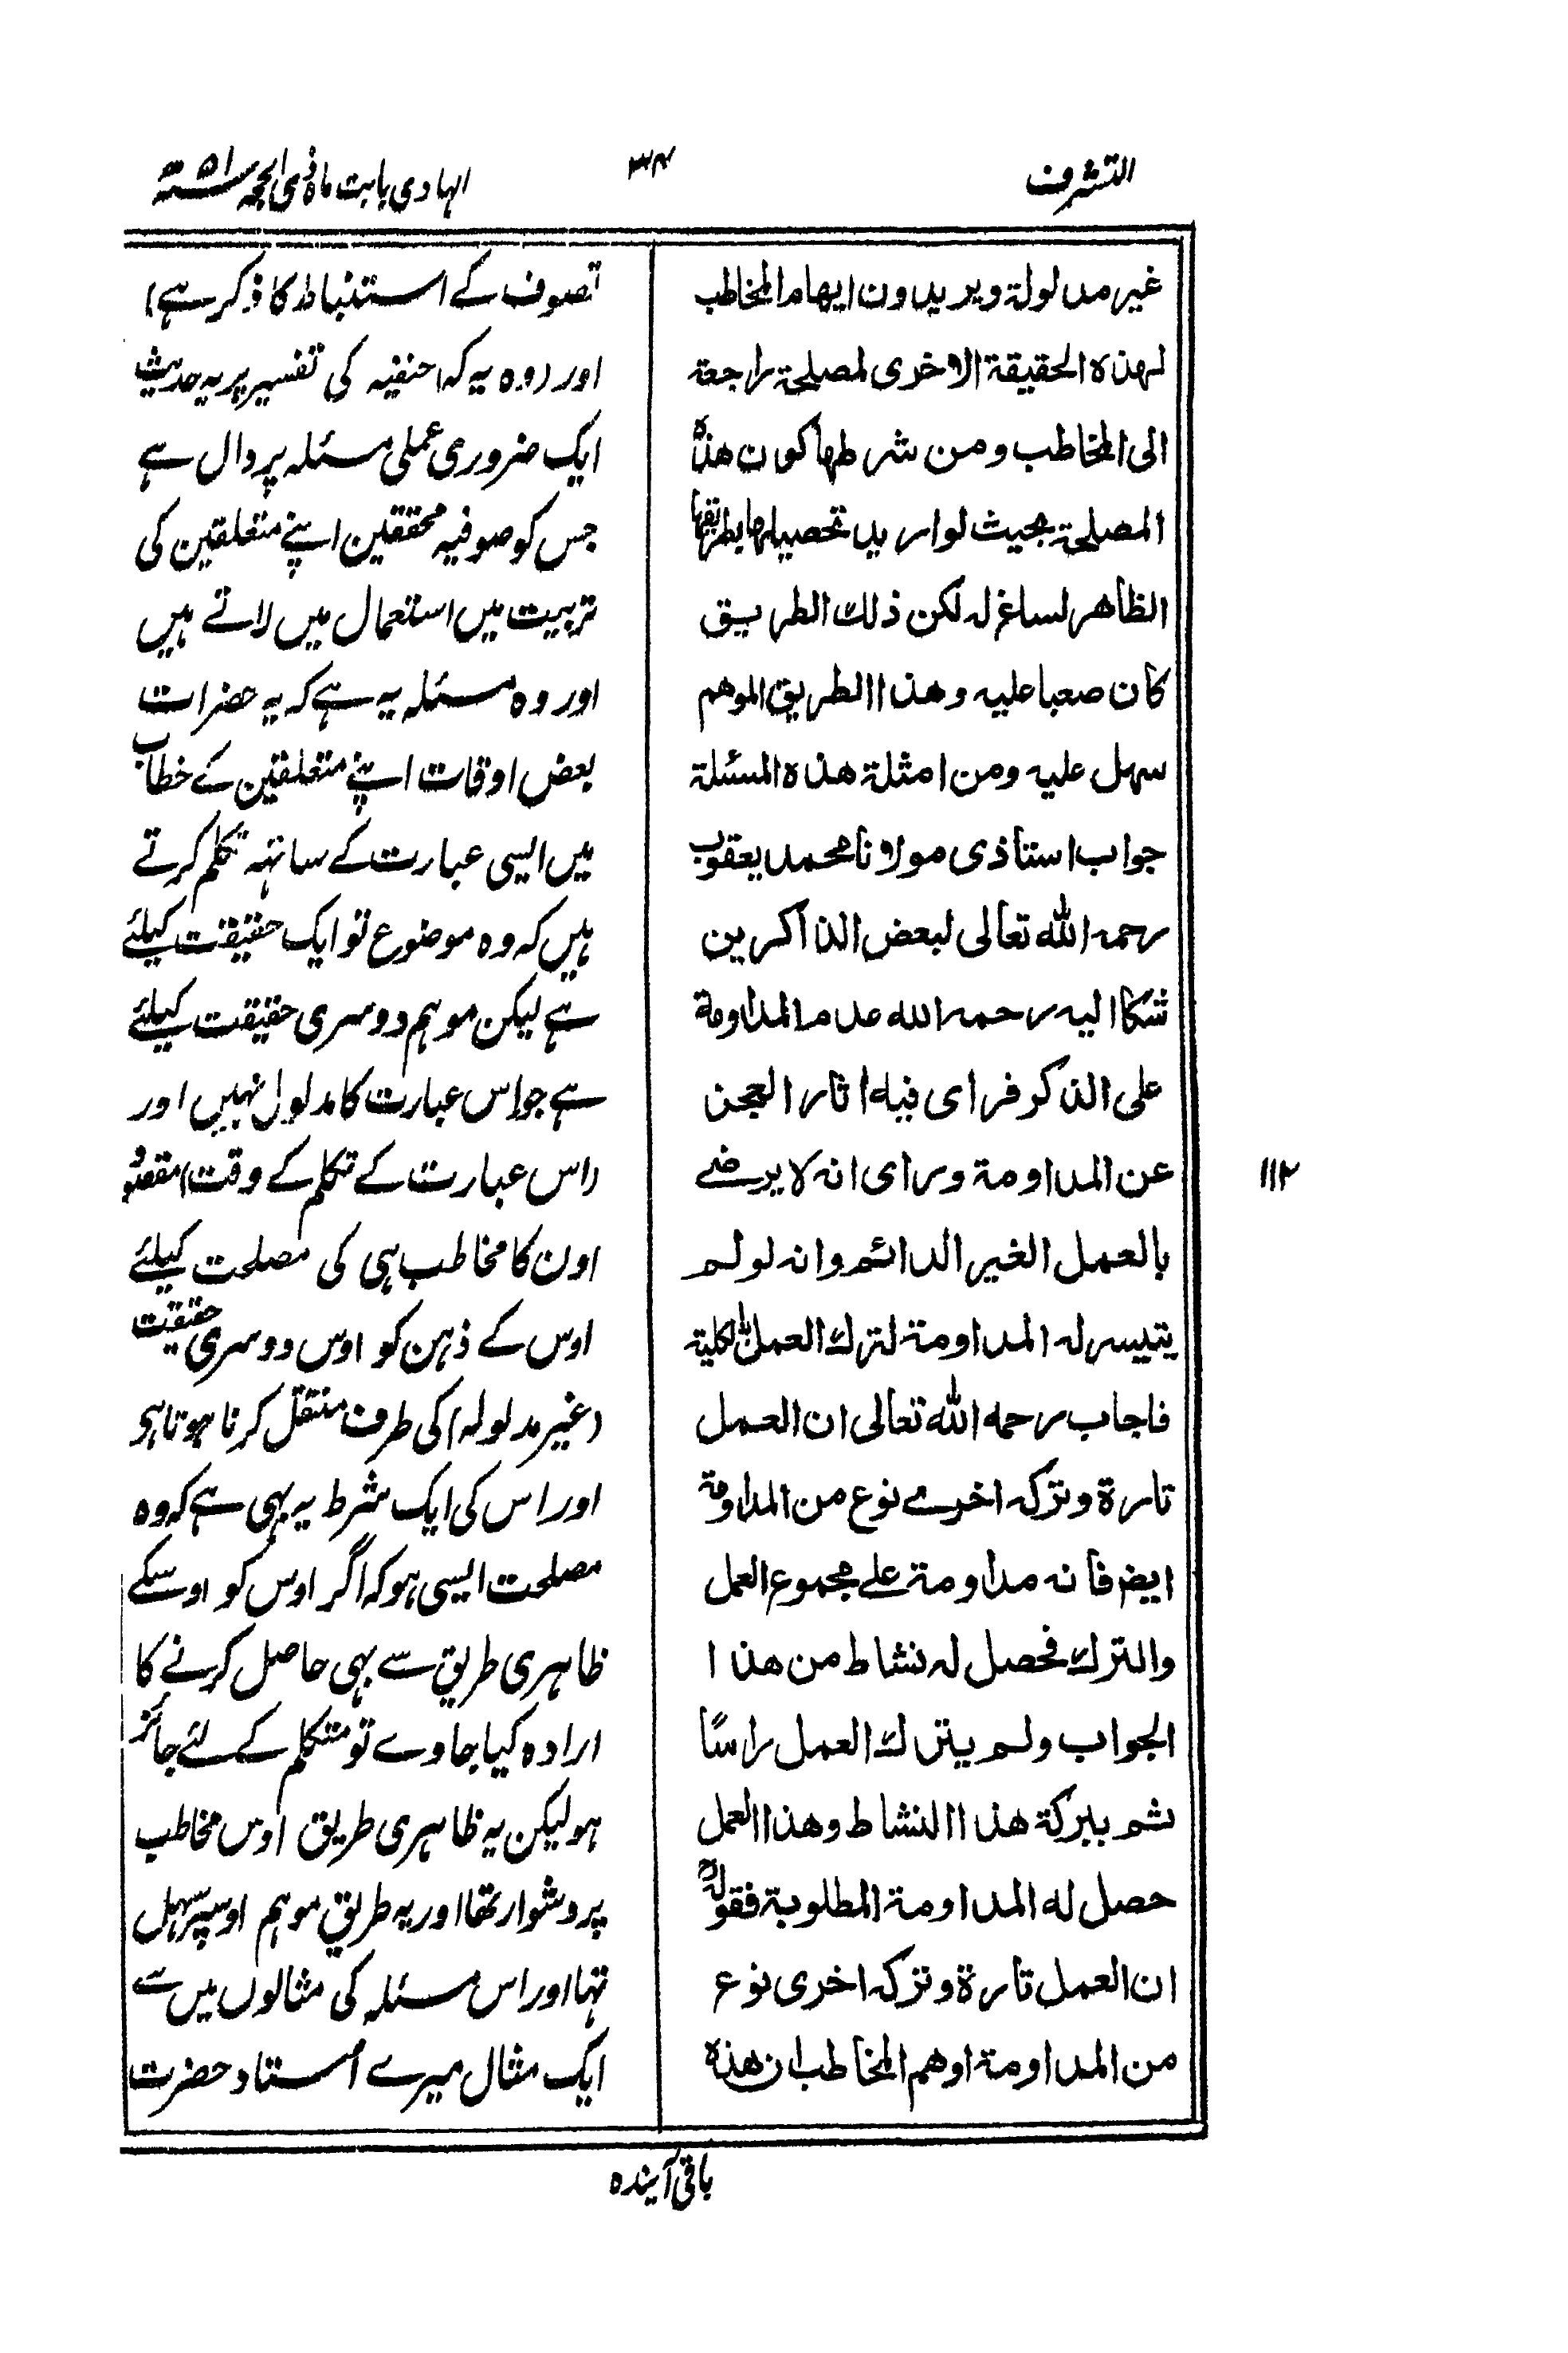 التشرف
۳۴
الہادی بابت ماہ ذی الحجہ ۵۱ھ
غیر مدلولۃ ویریدون ایہام المخاطب
لہذہ الحقیقۃ الاخری لمصلحۃ راجعۃ
الی المخاطب ومن شرطہا کون ھذہ
المصلحۃ بحیث لو ارید تحصیلہا بطریقہا
الظاھر لساغ لہ لکن ذلک الطریق
کان صعبا علیہ وھذا الطریق الموھم
سہل علیہ ومن امثلۃ ھذہ المسئلۃ
جواب استاذی مولانا محمد یعقوب
رحمہ اللہ تعالی لبعض الذاکرین
شکا الیہ رحمہ اللہ عدم المداومۃ
علی الذکر فرای فیہ اثار العجز
عن المداومۃ ورای انہ لا یرضے
بالعمل الغیر الدائم وانہ لو لم
یتیسر لہ المداومۃ لترک العمل بالکلیۃ
فاجاب رحمہ اللہ تعالی ان العمل
تارۃ وترکہ اخرے نوع من المداومۃ
ایضا فانہ مداومۃ علے مجموع العمل
والترک فحصل لہ نشاط من ھذا
الجواب ولم یترک العمل راسًا
ثم ببرکۃ ھذا النشاط وھذا العمل
حصل لہ المداومۃ المطلوبۃ فقولہ
ان العمل تارۃ وترکہ اخری نوع
من المداومۃ اوھم المخاطب ان ھذہ
۱۱۲
تصوف کے استنباط کا ذکر ہے)
اور (وہ یہ کہ) حنفیہ کی تفسیر پر یہ حدیث
ایک ضروری عملی مسئلہ پر دال ہے
جس کو صوفیہ محققین اپنے متعلقین کی
تربیت میں استعمال میں لاتے ہیں
اور وہ مسئلہ یہ ہے کہ یہ حضرات
بعض اوقات اپنے متعلقین کے خطاب
میں ایسی عبارت کے ساتہہ تکلم کرتے
ہیں کہ وہ موضوع تو ایک حقیقت کیلئے
ہے لیکن موہم دوسری حقیقت کیلئے
ہے جو اس عبارت کا مدلول نہیں اور
(اس عبارت کے تکلم کے وقت) مقصود
اون کا مخاطب ہی کی مصلحت کیلئے
اوس کے ذہن کو اوس دوسری حقیقت
(غیر مدلولہ) کی طرف منتقل کرنا ہوتا ہو
اور اس کی ایک شرط یہ بہی ہے کہ وہ
مصلحت ایسی ہو کہ اگر اوس کو اوسکے
ظاہری طریق سے بہی حاصل کرنے کا
ارادہ کیا جاوے تو متکلم کے لئے جائز
ہو لیکن یہ ظاہری طریق اوس مخاطب
پر دشوار تھا اور یہ طریق موہم اوسپر سہل
تہا اور اس مسئلہ کی مثالوں میں سے
ایک مثال میرے استاد حضرت
باقی آیندہ